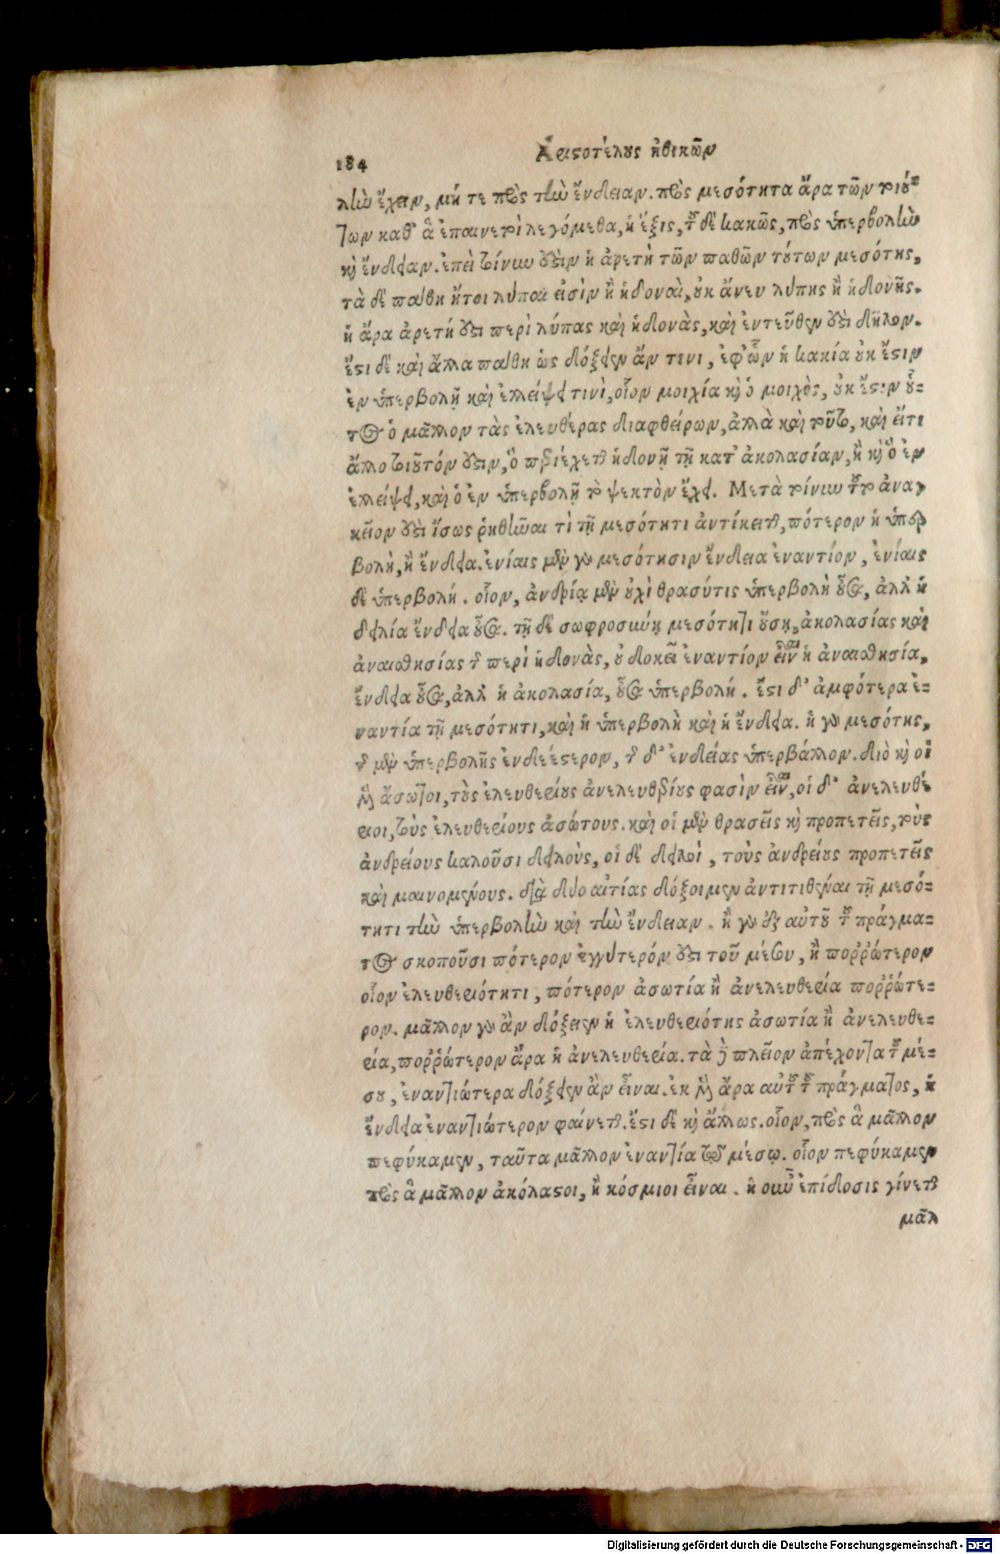 184 Ἀριστοτέλους ἠθικῶν
λὴν ἔχειν, μή τε πρὸς τὴν ἔνδειαν. πρὸς μεσότητα ἄρα τῶν τοιού-
των καθ' ἃ ἐπαινετοὶ λεγόμεθα, ἡ ἕξις, τοῦ δὲ κακῶς, πρὸς ὑπερβολὴν
καὶ ἔνδειαν. ἐπεὶ τοίνυν ἐστὶν ἡ ἀρετὴ τῶν παθῶν τούτων μεσότης,
τὰ δὲ πάθη ἤτοι λύπαι εἰσὶν ἢ ἡδοναὶ, οὐκ ἄνευ λύπης ἢ ἡδονῆς.
ἡ ἄρα ἀρετή ἐστι περὶ λύπας καὶ ἡδονὰς, καὶ ἐντεῦθεν ἐστὶ δῆλον.
ἔστι δὲ καὶ ἄλλα πάθη ὡς δόξειεν ἄν τινι, ἐφ' ὧν ἡ κακία οὐκ ἔστιν
ἐν ὑπερβολῇ καὶ ἐλλείψει τινὶ, οἷον μοιχία καὶ ὁ μοιχὸς, οὐκ ἔστιν οὗ-
τος ὁ μᾶλλον τὰς ἐλευθέρας διαφθείρων, ἀλλὰ καὶ τοῦτο, καὶ εἴ τι
ἄλλο τοιοῦτόν ἐστιν, ὃ περιέχεται ἡδονῇ τῇ κατ' ἀκολασίαν, ἢ καὶ ὃ ἐν
ἐλλείψει, καὶ ὃ ἐν ὑπερβολῇ τὸ ψεκτὸν ἔχει. Μετὰ τοίνυν τοῦτο ἀναγ
κεῖον ἐστὶ ἴσως ῥηθῆναι τί τῇ μεσότητι ἀντίκειται, πότερον ἡ ὑπερ
βολὴ, ἢ ἔνδεια. ἐνίαις μὲν γὰρ μεσότησιν ἔνδεια ἐναντίον, ἐνίαις
δὲ ὑπερβολή. οἷον, ἀνδρίᾳ μὲν οὐχὶ θρασύτις ὑπερβολὴ οὖσα, ἀλλ' ἡ
δειλία ἔνδεια οὖσα. τῇ δὲ σωφροσύνῃ μεσότητι οὔσῃ, ἀκολασίας καὶ
ἀναισθησίας τῆς περὶ ἡδονὰς, οὐ δοκεῖ ἐναντίον εἶναι ἡ ἀναισθησία,
ἔνδεια οὖσα, ἀλλ' ἡ ἀκολασία, οὖσα ὑπερβολή. ἔστι δ' ἀμφότερα ἐ-
ναντία τῇ μεσότητι, καὶ ἡ ὑπερβολὴ καὶ ἡ ἔνδεια. ἡ γὰρ μεσότης,
τῆς μὲν ὑπερβολῆς ἐνδεέστερον, τῆς δ' ἐνδείας ὑπερβάλλον. διὸ καὶ οἱ
μὲν ἄσωτοι, τοὺς ἐλευθερίους ἀνελευθερίους φασὶν εἶναι, οἱ δ' ἀνελευθέ
ριοι, τοὺς ἐλευθερίους ἀσώτους. καὶ οἱ μὲν θρασεῖς καὶ προπετεῖς, τοὺς
ἀνδρείους καλοῦσι δειλοὺς, οἱ δὲ δειλοὶ, τοὺς ἀνδρείους προπετεῖς
καὶ μαινομένους. διὰ δύο αἰτίας δόξοιμεν ἀντιτιθέναι τῇ μεσό-
τητι τὴν ὑπερβολὴν καὶ τὴν ἔνδειαν. ἢ γὰρ ἐξ αὐτοῦ τοῦ πράγμα-
τος σκοποῦσι πότερον ἐγγυτερόν ἐστι τοῦ μέσου, ἢ πορῤῥώτερον
οἷον ἐλευθεριότητι, πότερον ἀσωτία ἢ ἀνελευθερία πορῤῥώτε-
ρον. μᾶλλον γὰρ ἂν δόξειεν ἡ ἐλευθεριότης ἀσωτία ἢ ἀνελευθε-
ρία, πορῤῥώτερον ἄρα ἡ ἀνελευθερία. τὰ δὲ πλεῖον ἀπέχοντα τοῦ μέ-
σου, ἐναντιώτερα δόξειεν ἂν εἶναι. ἐκ μὲν ἄρα αὐτοῦ τοῦ πράγματος, ἡ
ἔνδεια ἐναντιώτερον φαίνεται. ἔστι δὲ καὶ ἄλλως. οἷον, πρὸς ἃ μᾶλλον
πεφύκαμεν, ταῦτα μᾶλλον ἐναντία τῷ μέσῳ. οἷον πεφύκαμεν
πρὸς ἃ μᾶλλον ἀκόλαστοι, ἢ κόσμιοι εἶναι. ἡ οὖν ἐπίδοσις γίνεται
μᾶλ
Digitalisierung gefördert durch die Deutsche Forschungsgemeinschaft - DFG